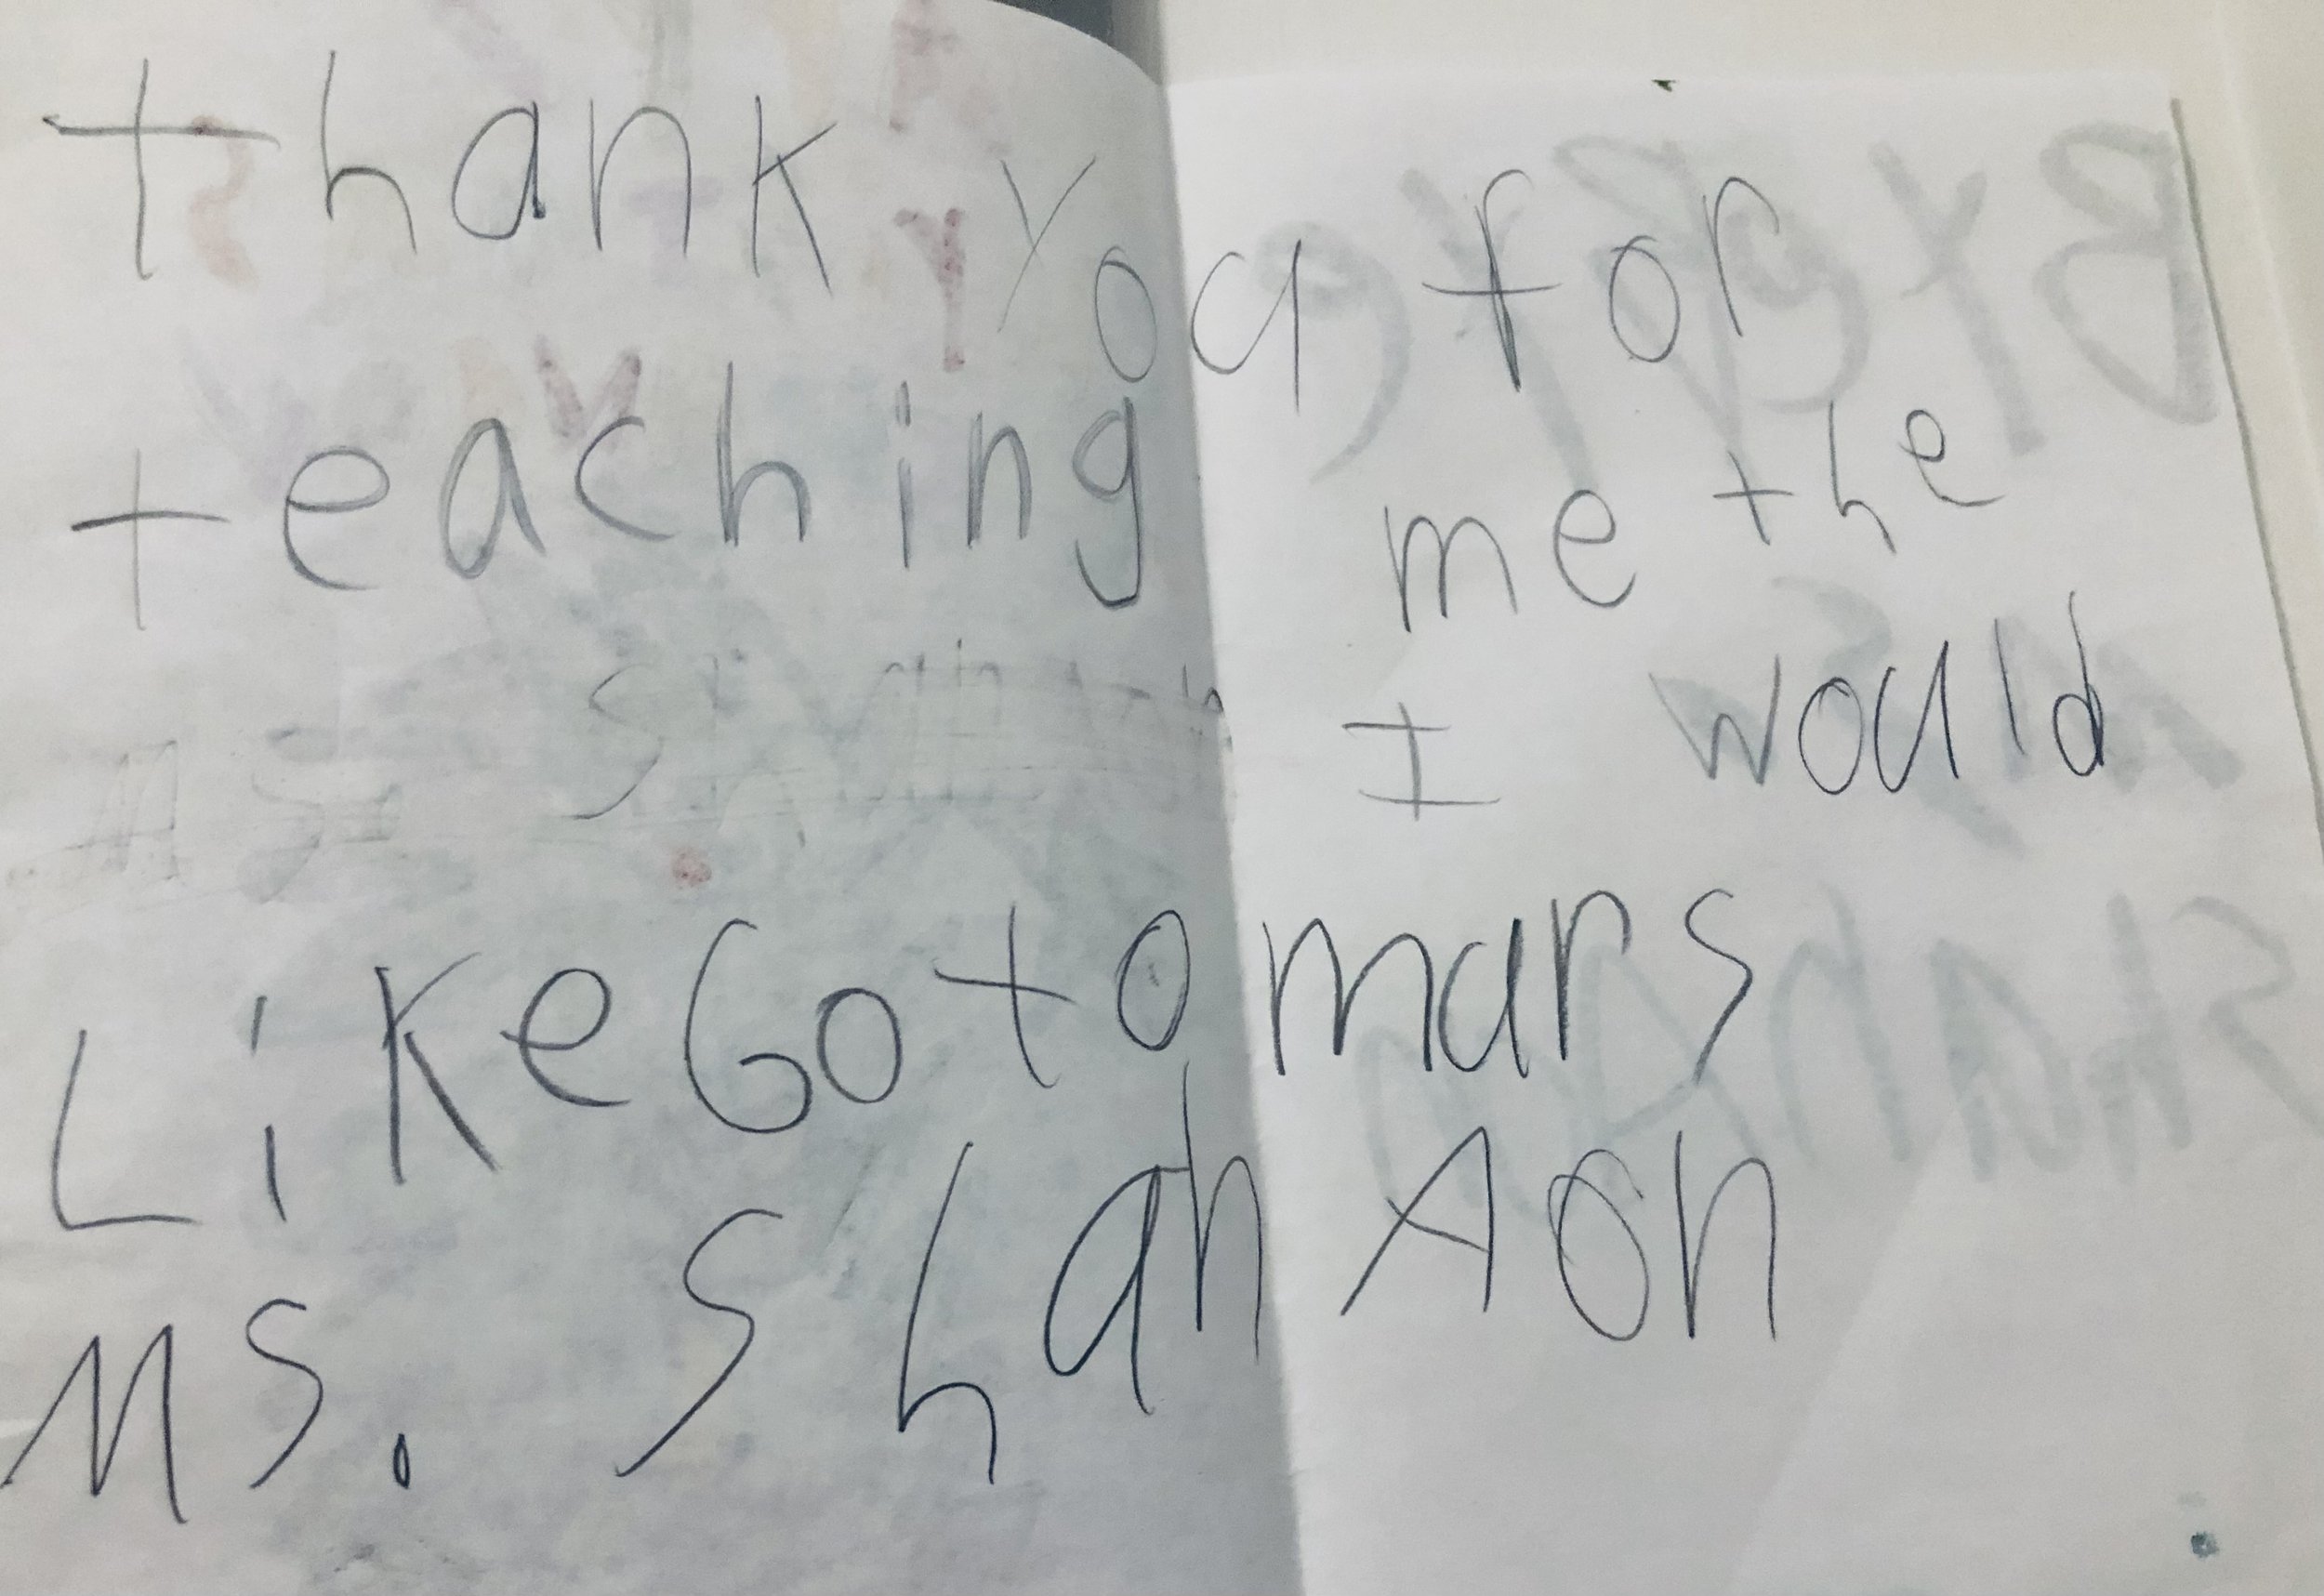 thank you for
teaching me the
I would
Like Go to mars
Ms. ShanAon